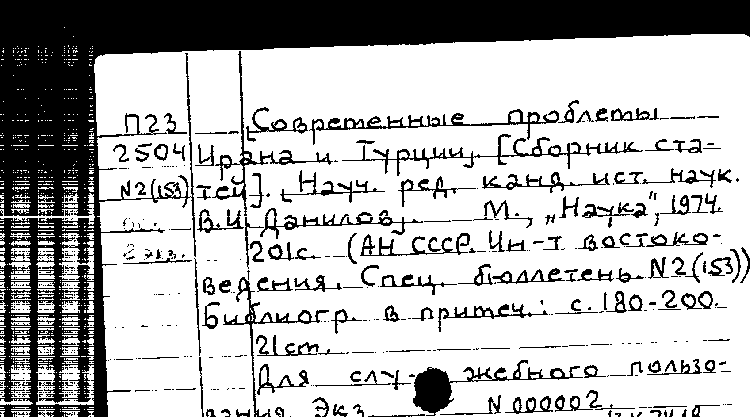 П23 Современные проблемы
2504 Ирана и Турции. [Сборник ста-
N2(153) тей]. Науч. ред. канд. ист. наук.
В.И. Данилов. М., „Наука", 1974.
2 экз. 201с. (АН СССР. Ин-т востоко-
ведения. Спец. бюллетень. N2(153))
Библиогр. в примеч.: с. 180-200.
21 cm.
Для слу- жебного пользо-
вания. Экз. N 000002